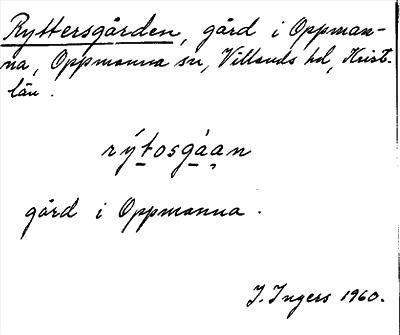 Ryttersgården, gård i Oppman-
na, Oppmanna sn, Villands hd, Krist.
län.
rýtosgáan
gård i Oppmanna.
I. Ingers 1960.